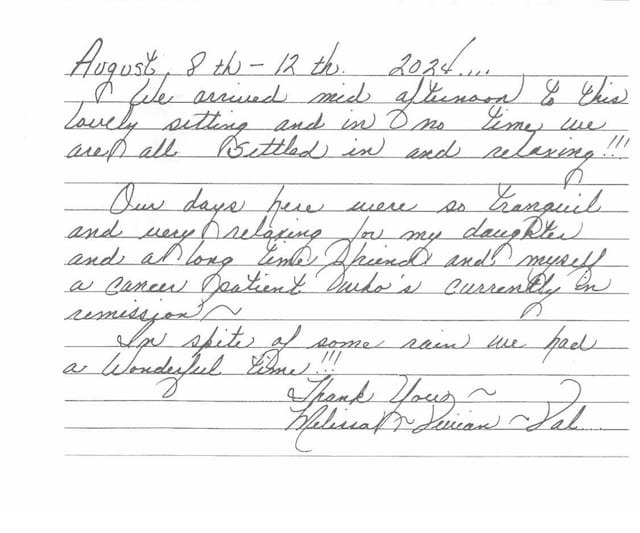 August, 8 th - 12 th. 2024....
We arrived mid afternoon to this
lovely sitting and in no time we
are all settled in and relaxing!!!
Our days here were so tranquil
and very relaxing for my daughter
and a long time friend and myself
a cancer patient who's currently in
remission ~
In spite of some rain we had
a wonderful time!!!
Thank You ~
Melissa ~ Vivian ~ Val...